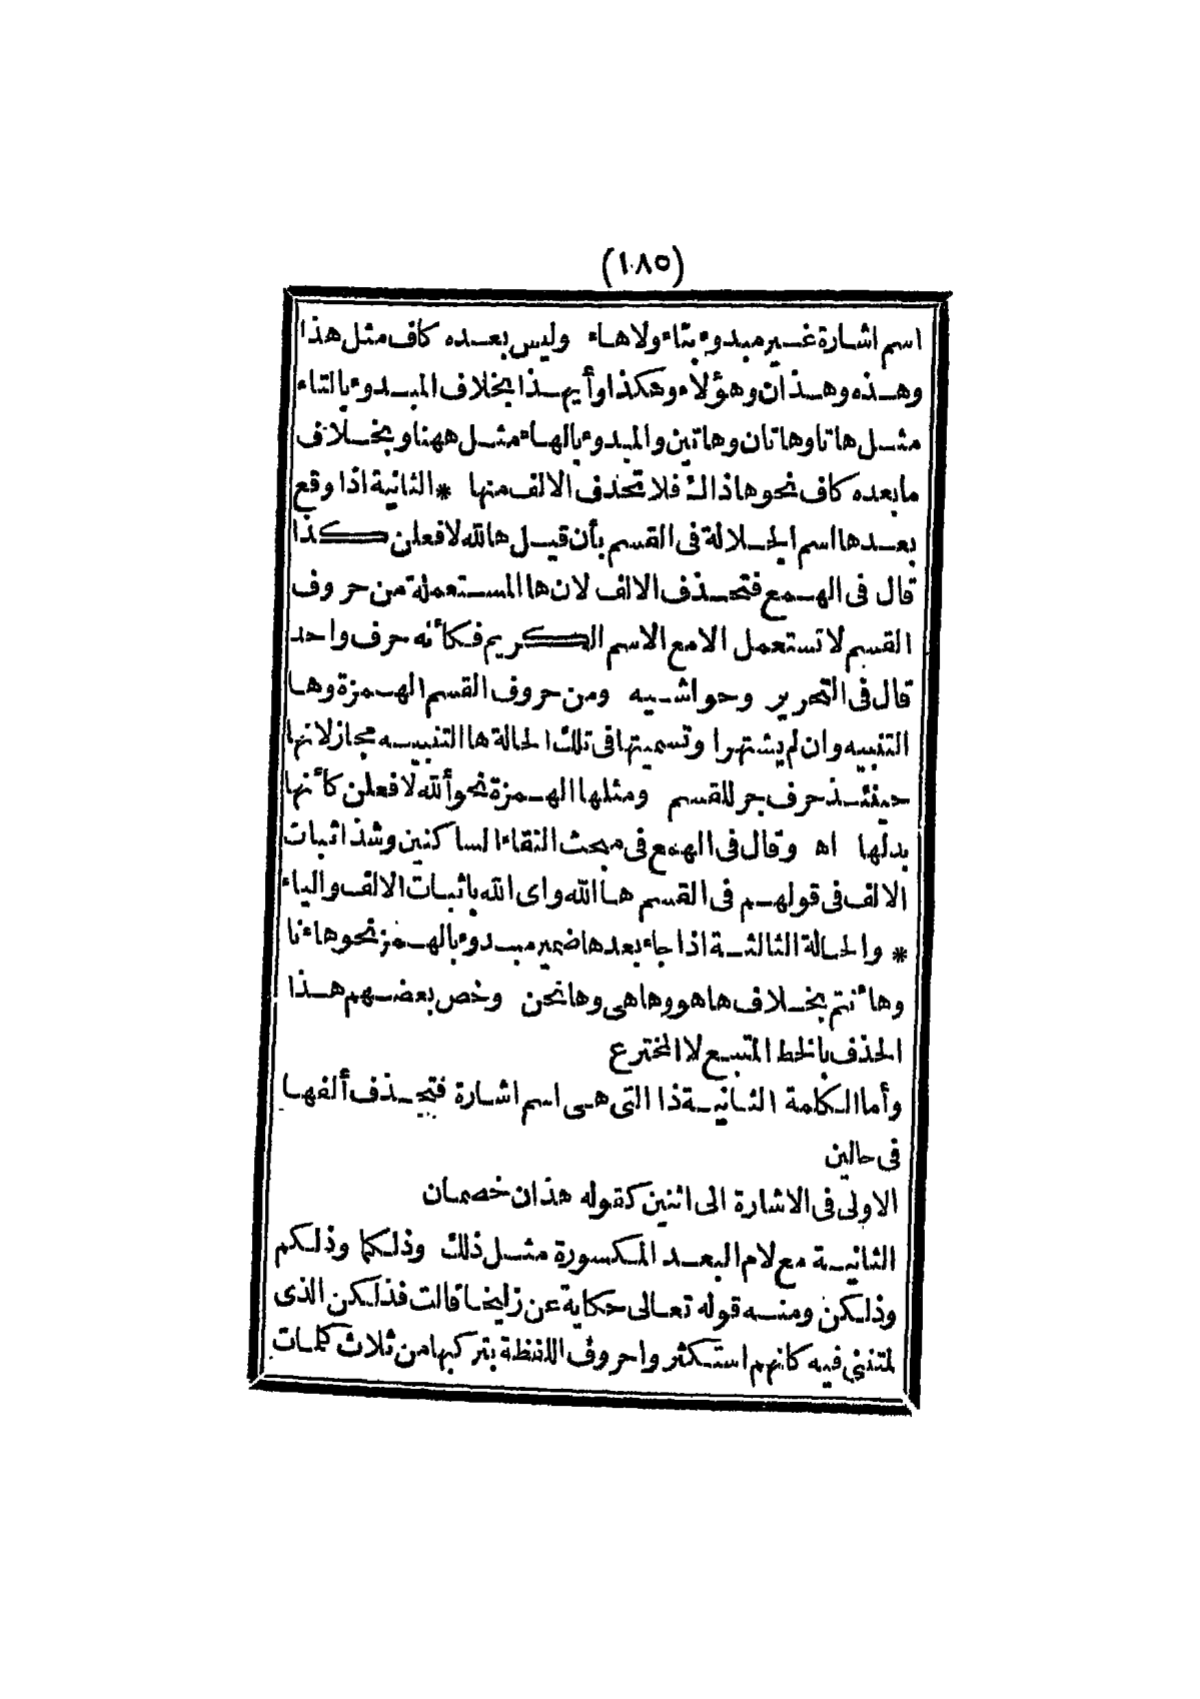 (١٨٥)
اسم اشارة غير مبدوء بتاء ولا هاء وليس بعده كاف مثل هذا
وهذه وهذان وهؤلاء وهكذا وأيهذا بخلاف المبدوء بالتاء
مثل هاتا وهاتان وهاتين والمبدوء بالهاء مثل ههنا وبخلاف
ما بعده كاف نحو هاذاك فلا تحذف الالف منها * الثانية اذا وقع
بعدها اسم الجلالة فى القسم بأن قيل هالله لافعلن كذا
قال فى الهمع فتحذف الالف لان ها المستعملة من حروف
القسم لا تستعمل الا مع الاسم الكريم فكأنه حرف واحد
قال فى التحرير وحواشيه ومن حروف القسم الهمزة وها
التنبيه وان لم يشتهرا وتسميتها فى تلك الحالة ها التنبيه مجاز لانها
حينئذ حرف جر للقسم ومثلها الهمزة نحو أالله لافعلن كأنها
بدلها اه وقال فى الهمع فى مبحث التقاء الساكنين وشذ اثبات
الالف فى قولهم فى القسم ها الله واى الله باثبات الالف والياء
* والحالة الثالثة اذا جاء بعدها ضمير مبدوء بالهمز نحو هاءنا
وهاأنتم بخلاف ها هو وها هى وها نحن وخص بعضهم هذا
الحذف بالخط المتبع لا المخترع
وأما الكلمة الثانية ذا التى هى اسم اشارة فتحذف ألفها
فى حالين
الاولى فى الاشارة الى اثنين كقوله هذان خصمان
الثانية مع لام البعد المكسورة مثل ذلك وذلكما وذلكم
وذلكن ومنه قوله تعالى حكاية عن زليخا قالت فذلكن الذى
لمتننى فيه كانهم استكثروا حروف اللفظة بتركبها من ثلاث كلمات